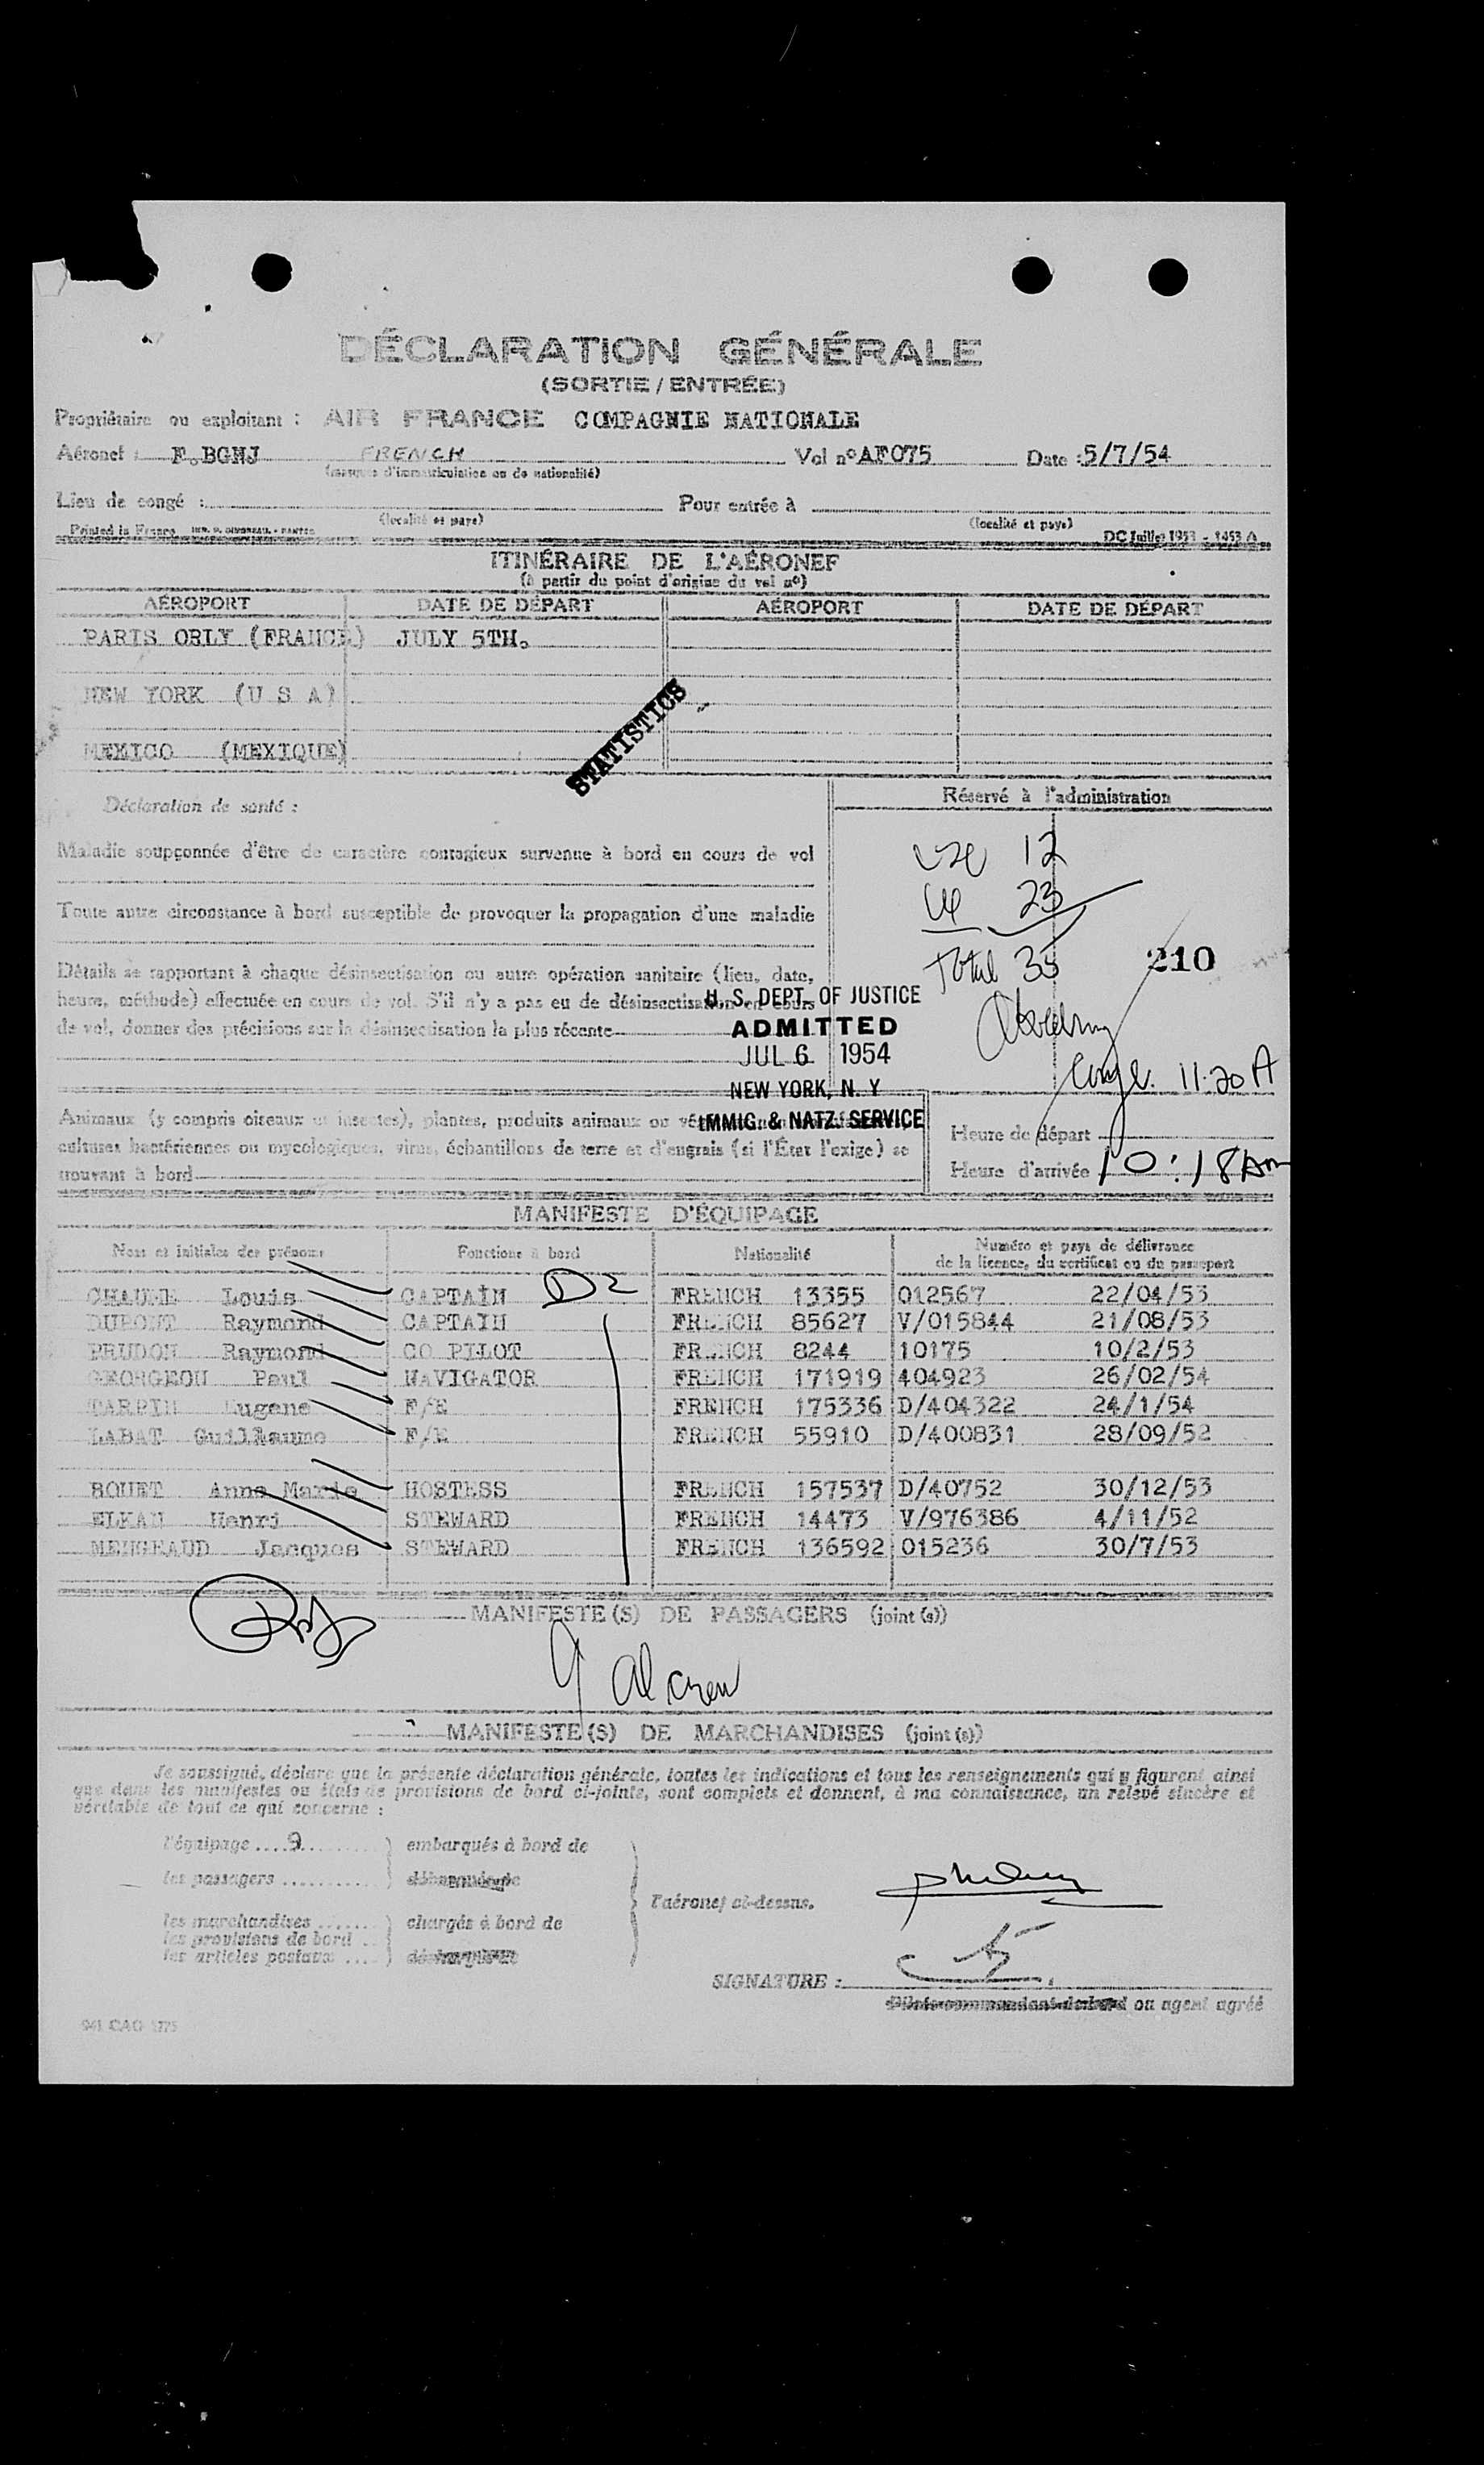 DÉCLARATION GÉNÉRALE
(SORTIE / ENTRÉE)
Propriétaire ou exploitant : AIR FRANCE COMPAGNIE NATIONALE
Aéronef : F.BGNJ FRENCH Vol nº AF075 Date : 5/7/54
(marques d'immatriculation ou de nationalité)
Lieu de congé : Pour entrée à
(localité et pays) (localité et pays)
Printed in France DC Juillet 1953 - 1453 A
ITINÉRAIRE DE L'AÉRONEF
(à partir du point d'origine du vol nº)
AÉROPORT DATE DE DÉPART AÉROPORT DATE DE DÉPART
PARIS ORLY (FRANCE) JULY 5TH.
NEW YORK (U S A)
MEXICO (MEXIQUE)
STATISTICS
Déclaration de santé : Réservé à l'administration
Maladie soupçonnée d'être de caractère contagieux survenue à bord en cours de vol
12
Toute autre circonstance à bord susceptible de provoquer la propagation d'une maladie
23
Total 35
210
Détails se rapportant à chaque désinsectisation ou autre opération sanitaire (lieu, date,
heure, méthode) effectuée en cours de vol. S'il n'y a pas eu de désinsectisation en cours
de vol, donner des précisions sur la désinsectisation la plus récente
U. S. DEPT. OF JUSTICE
ADMITTED
JUL 6 1954
NEW YORK, N. Y
IMMIG. & NATZ. SERVICE
11:20 A
Animaux (y compris oiseaux et insectes), plantes, produits animaux ou
cultures bactériennes ou mycologiques, virus, échantillons de terre et d'engrais (si l'État l'exige) se
trouvant à bord
Heure de départ
Heure d'arrivée 10:18 Am
MANIFESTE D'ÉQUIPAGE
Noms et initiales des prénoms Fonctions à bord Nationalité Numéro et pays de délivrance
de la licence, du certificat ou du passeport
CHAUME Louis CAPTAIN D2 FRENCH 13355 012567 22/04/53
DUPONT Raymond CAPTAIN FRENCH 85627 V/015844 21/08/53
PRUDON Raymond CO PILOT FRENCH 8244 10175 10/2/53
GEORGEON Paul NAVIGATOR FRENCH 171919 404923 26/02/54
TARPIN Eugene F/E FRENCH 175336 D/404322 24/1/54
LABAT Guillaume F/E FRENCH 55910 D/400831 28/09/52
ROUET Anne Marie HOSTESS FRENCH 157537 D/40752 30/12/53
ELKAN Henri STEWARD FRENCH 14473 V/976386 4/11/52
MENGEAUD Jacques STEWARD FRENCH 136592 015236 30/7/53
MANIFESTE (S) DE PASSAGERS (joint (s))
9 al crew
MANIFESTE (S) DE MARCHANDISES (joint (s))
Je soussigné, déclare que la présente déclaration générale, toutes les indications et tous les renseignements qui y figurent ainsi
que dans les manifestes ou états de provisions de bord ci-joints, sont complets et donnent, à ma connaissance, un relevé sincère et
véritable de tout ce qui concerne :
l'équipage .... 9 ........ embarqués à bord de
les passagers ........... débarqués de
l'aéronef ci-dessus.
les marchandises ....... chargés à bord de
les provisions de bord ..
les articles postaux .... déchargés de
SIGNATURE :
Pilote commandant de bord ou agent agréé
941 CAO 1775